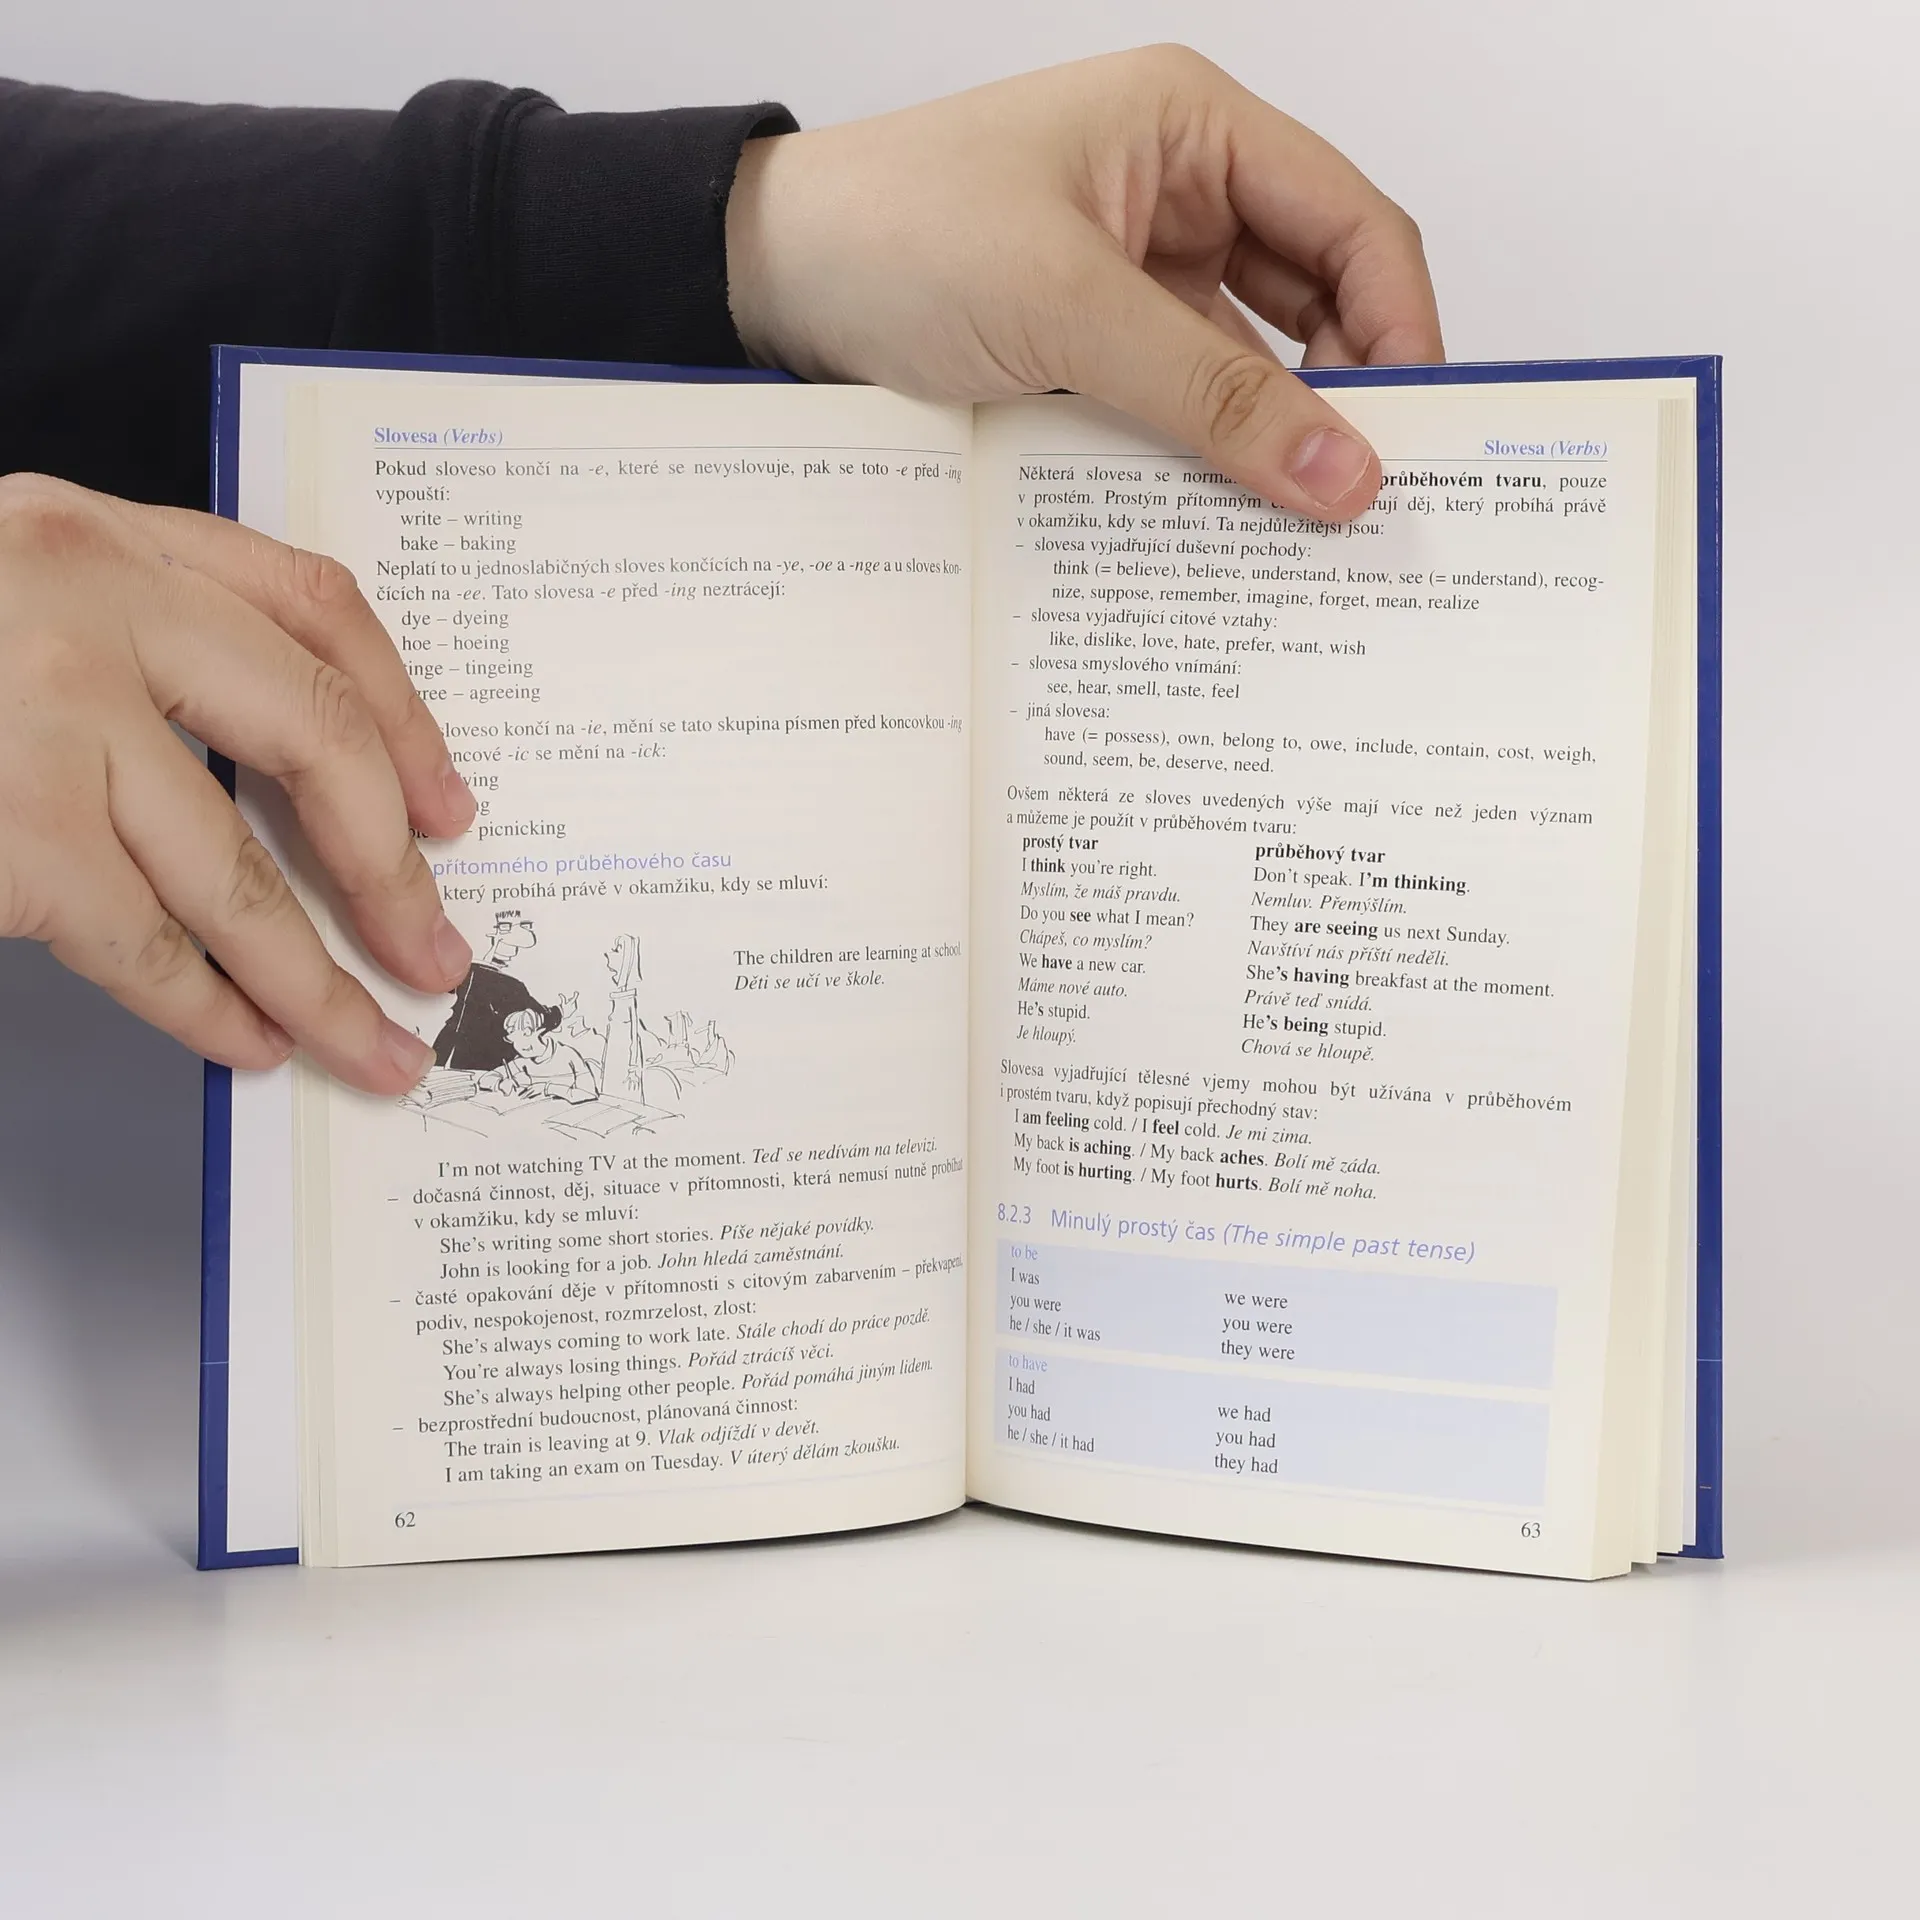 Slovesa (Verbs)
Pokud sloveso končí na -e, které se nevyslovuje, pak se toto -e před -ing
vypouští:
write – writing
bake – baking
Neplatí to u jednoslabičných sloves končících na -ye, -oe a -nge a u sloves kon-
čících na -ee. Tato slovesa -e před -ing neztrácejí:
dye – dyeing
hoe – hoeing
– tingeing
– agreeing
končí na -ie, mění se tato skupina písmen před koncovkou -ing
-ic se mění na -ick:
– picnicking
přítomného průběhového času
který probíhá právě v okamžiku, kdy se mluví:
The children are learning at school.
Děti se učí ve škole.
I'm not watching TV at the moment. Teď se nedívám na televizi.
– dočasná činnost, děj, situace v přítomnosti, která nemusí nutně probíhat
v okamžiku, kdy se mluví:
She's writing some short stories. Píše nějaké povídky.
John is looking for a job. John hledá zaměstnání.
– časté opakování děje v přítomnosti s citovým zabarvením – překvapení,
podiv, nespokojenost, rozmrzelost, zlost:
She's always coming to work late. Stále chodí do práce pozdě.
You're always losing things. Pořád ztrácíš věci.
She's always helping other people. Pořád pomáhá jiným lidem.
– bezprostřední budoucnost, plánovaná činnost:
The train is leaving at 9. Vlak odjíždí v devět.
I am taking an exam on Tuesday. V úterý dělám zkoušku.
62
Slovesa (Verbs)
Některá slovesa se průběhovém tvaru, pouze
v prostém. Prostým přítomným děj, který probíhá právě
v okamžiku, kdy se mluví. Ta nejdůležitější jsou:
– slovesa vyjadřující duševní pochody:
think (= believe), believe, understand, know, see (= understand), recog-
nize, suppose, remember, imagine, forget, mean, realize
– slovesa vyjadřující citové vztahy:
like, dislike, love, hate, prefer, want, wish
– slovesa smyslového vnímání:
see, hear, smell, taste, feel
– jiná slovesa:
have (= possess), own, belong to, owe, include, contain, cost, weigh,
sound, seem, be, deserve, need.
Ovšem některá ze sloves uvedených výše mají více než jeden význam
a můžeme je použít v průběhovém tvaru:
prostý tvar průběhový tvar
I think you're right. Don't speak. I'm thinking.
Myslím, že máš pravdu. Nemluv. Přemýšlím.
Do you see what I mean? They are seeing us next Sunday.
Chápeš, co myslím? Navštíví nás příští neděli.
We have a new car. She's having breakfast at the moment.
Máme nové auto. Právě teď snídá.
He's stupid. He's being stupid.
Je hloupý. Chová se hloupě.
Slovesa vyjadřující tělesné vjemy mohou být užívána v průběhovém
i prostém tvaru, když popisují přechodný stav:
I am feeling cold. / I feel cold. Je mi zima.
My back is aching. / My back aches. Bolí mě záda.
My foot is hurting. / My foot hurts. Bolí mě noha.
8.2.3 Minulý prostý čas (The simple past tense)
to be
I was we were
you were you were
he / she / it was they were
to have
I had we had
you had you had
he / she / it had they had
63